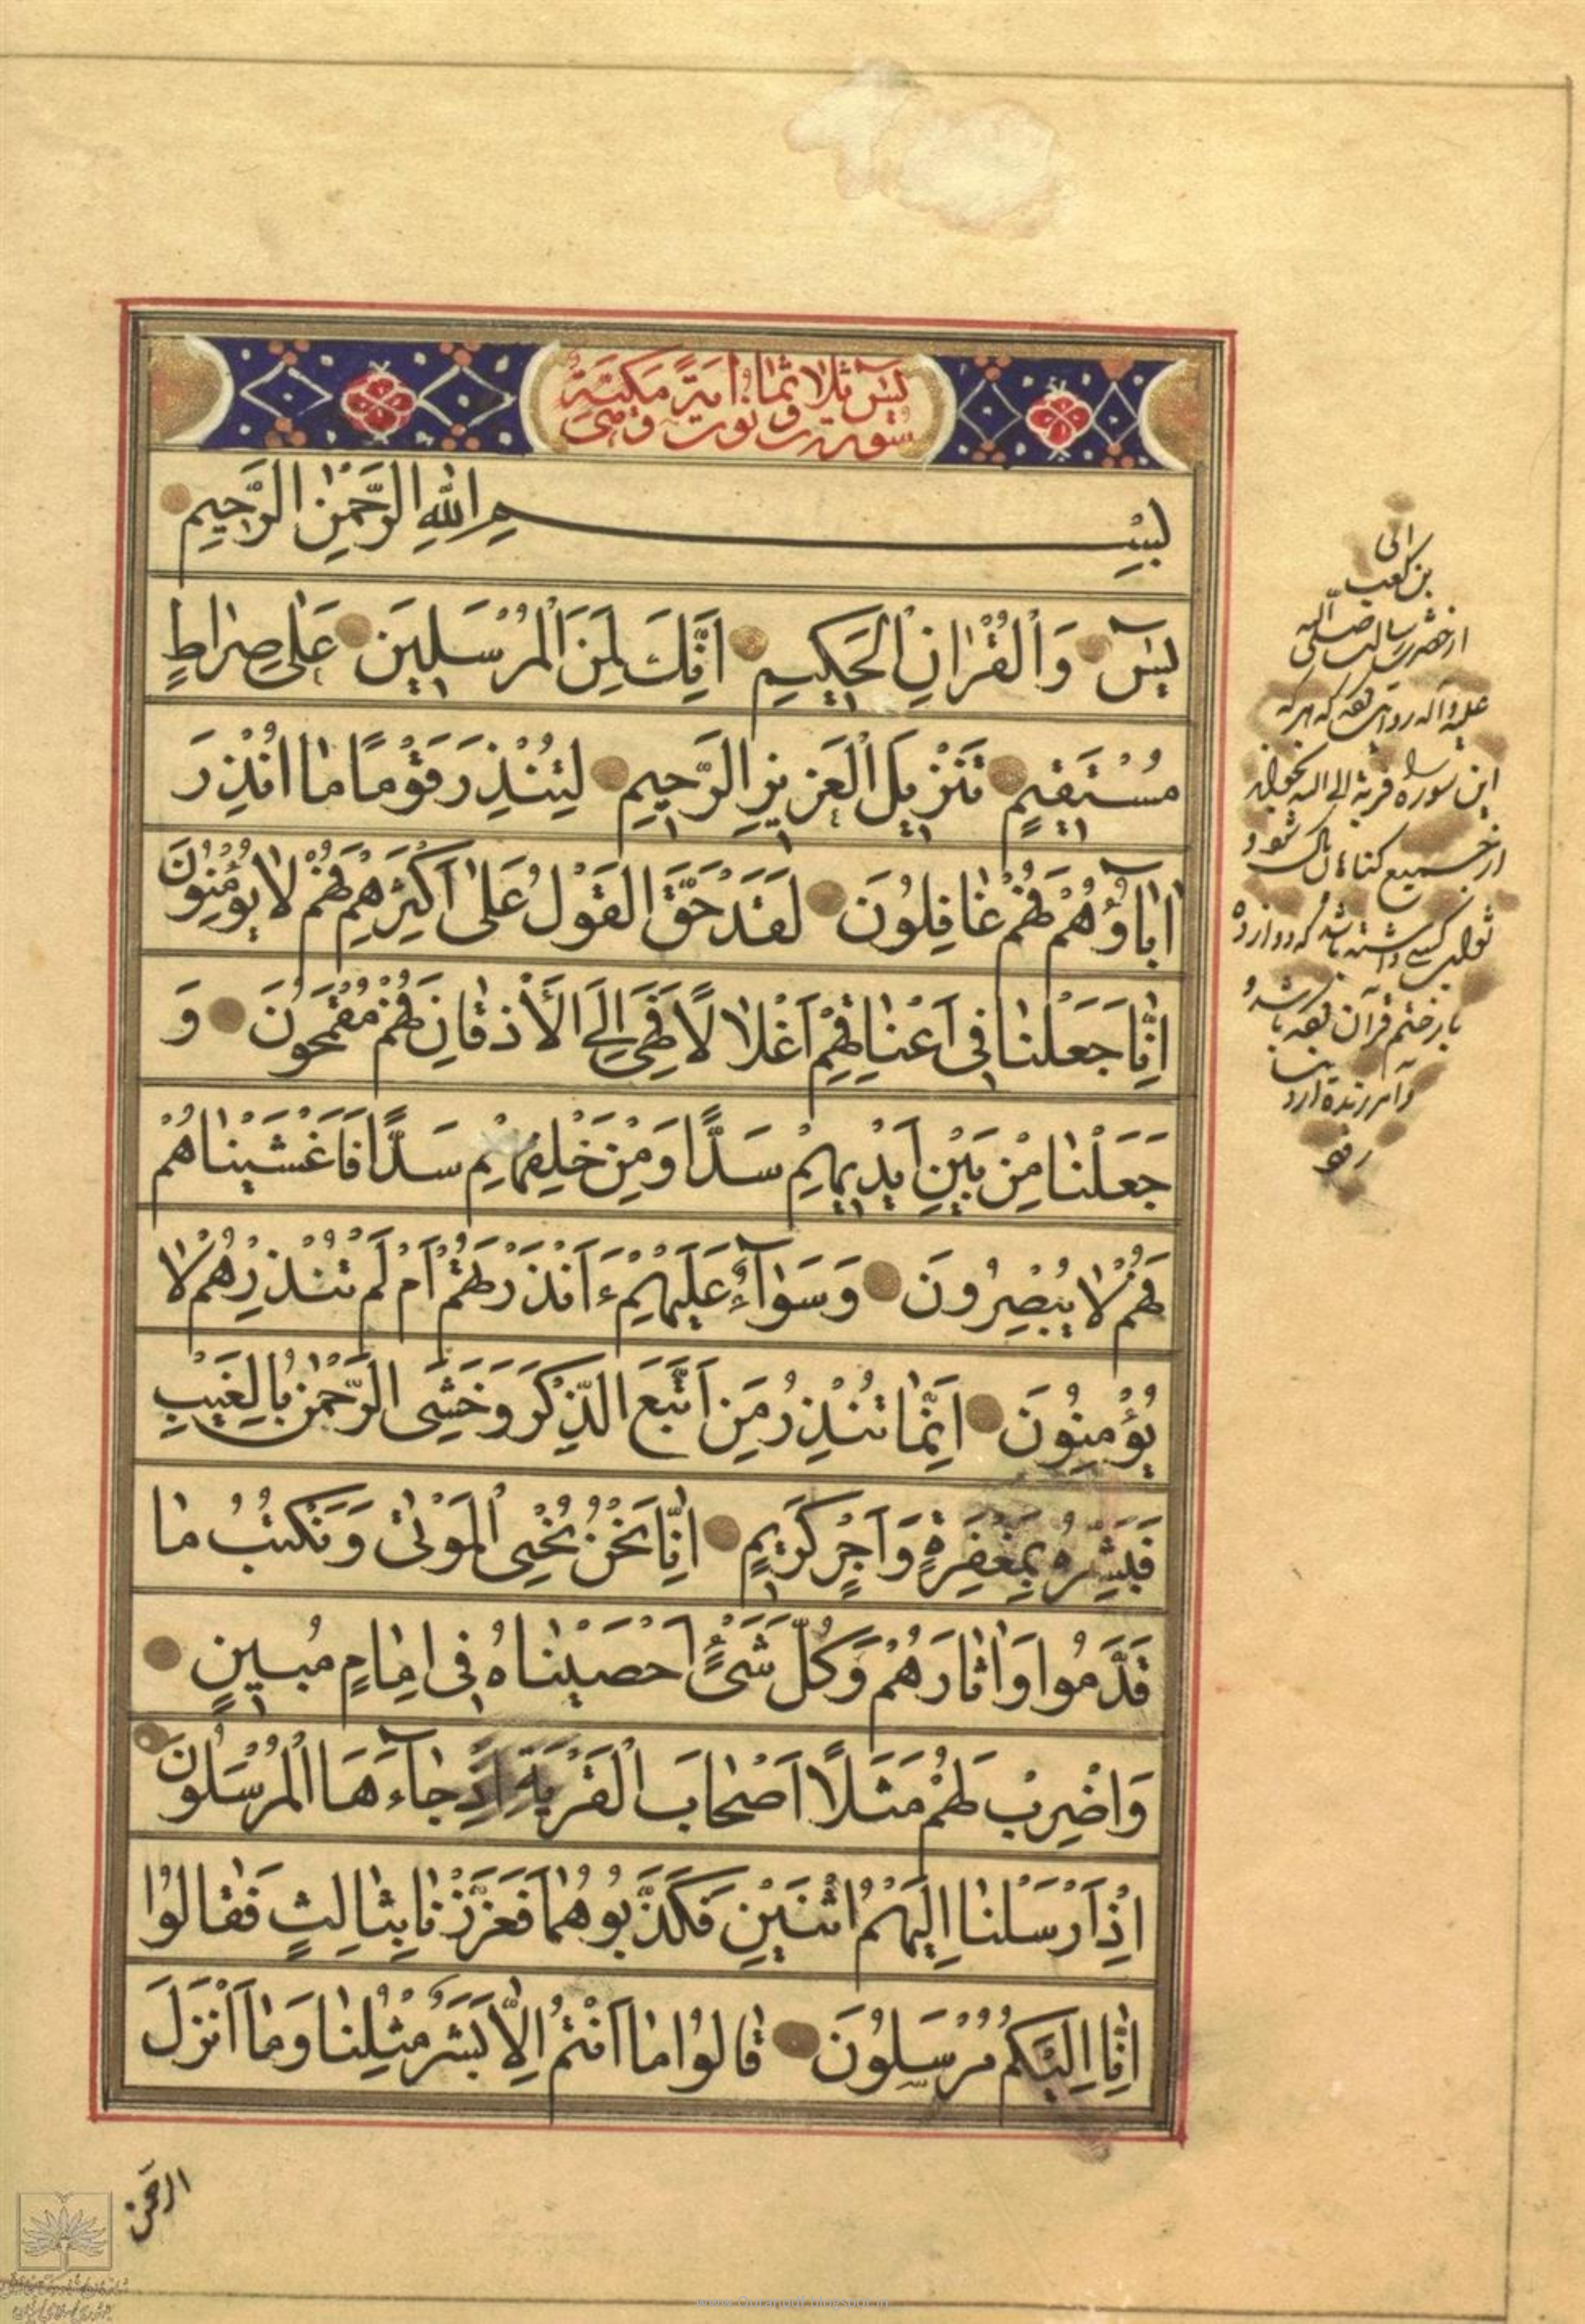 سورة يس ثلاث وثمانون آية مكية
بِسْمِ اللهِ الرَّحْمٰنِ الرَّحِيمِ
يٰسٓ وَالْقُرْاٰنِ الْحَكِيمِ اِنَّكَ لَمِنَ الْمُرْسَلِينَ عَلٰى صِرٰاطٍ
مُسْتَقِيمٍ تَنْزِيلَ الْعَزِيزِ الرَّحِيمِ لِتُنْذِرَ قَوْمًا مٰا اُنْذِرَ
اٰبٰاؤُهُمْ فَهُمْ غٰافِلُونَ لَقَدْ حَقَّ الْقَوْلُ عَلٰى اَكْثَرِهِمْ فَهُمْ لٰا يُؤْمِنُونَ
اِنّٰا جَعَلْنٰا فِى اَعْنٰاقِهِمْ اَغْلٰالًا فَهِىَ اِلَى الْاَذْقٰانِ فَهُمْ مُقْمَحُونَ وَ
جَعَلْنٰا مِنْ بَيْنِ اَيْدِيهِمْ سَدًّا وَمِنْ خَلْفِهِمْ سَدًّا فَاَغْشَيْنٰاهُمْ
فَهُمْ لٰا يُبْصِرُونَ وَسَوٰآءٌ عَلَيْهِمْ ءَاَنْذَرْتَهُمْ اَمْ لَمْ تُنْذِرْهُمْ لٰا
يُؤْمِنُونَ اِنَّمٰا تُنْذِرُ مَنِ اتَّبَعَ الذِّكْرَ وَخَشِىَ الرَّحْمٰنَ بِالْغَيْبِ
فَبَشِّرْهُ بِمَغْفِرَةٍ وَاَجْرٍ كَرِيمٍ اِنّٰا نَحْنُ نُحْىِ الْمَوْتٰى وَنَكْتُبُ مٰا
قَدَّمُوا وَاٰثٰارَهُمْ وَكُلَّ شَىْءٍ اَحْصَيْنٰاهُ فِى اِمٰامٍ مُبِينٍ
وَاضْرِبْ لَهُمْ مَثَلًا اَصْحٰابَ الْقَرْيَةِ اِذْ جٰآءَهَا الْمُرْسَلُونَ
اِذْ اَرْسَلْنٰا اِلَيْهِمُ اثْنَيْنِ فَكَذَّبُوهُمٰا فَعَزَّزْنٰا بِثٰالِثٍ فَقٰالُوا
اِنّٰا اِلَيْكُمْ مُرْسَلُونَ قٰالُوا مٰا اَنْتُمْ اِلّٰا بَشَرٌ مِثْلُنٰا وَمٰا اَنْزَلَ
الرحمن
ابی
بن کعب
از حضرت رسالت صلی الله
علیه وآله روایت که هر که
این سوره قربة الی الله بخواند
از جمیع گناهان پاک شود و
ثواب کسی داشته باشد که دوازده
بار ختم قرآن